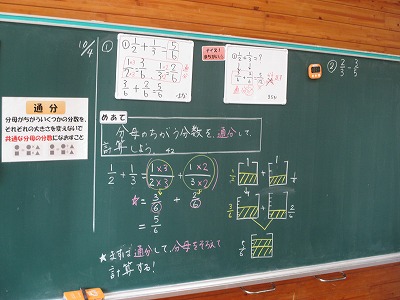 10/4
①
① 1/2 + 1/3 = 5/6
3/6 + 2/6 = 5/6
ナイス！
① 1/2 + 1/3 = ?
② 2/3 - 3/5
通分
分母がちがういくつかの分数を、
それぞれの大きさを変えないで
共通な分母の分数になおすこと
めあて
分母のちがう分数を、通分して、
計算しよう。
1/2 + 1/3 = 1×3/2×3 + 1×2/3×2
☆ = 3/6 + 2/6
= 5/6
1/2 + 1/3
3/6 + 2/6
5/6
★まずは通分して、分母をそろえて
計算する！